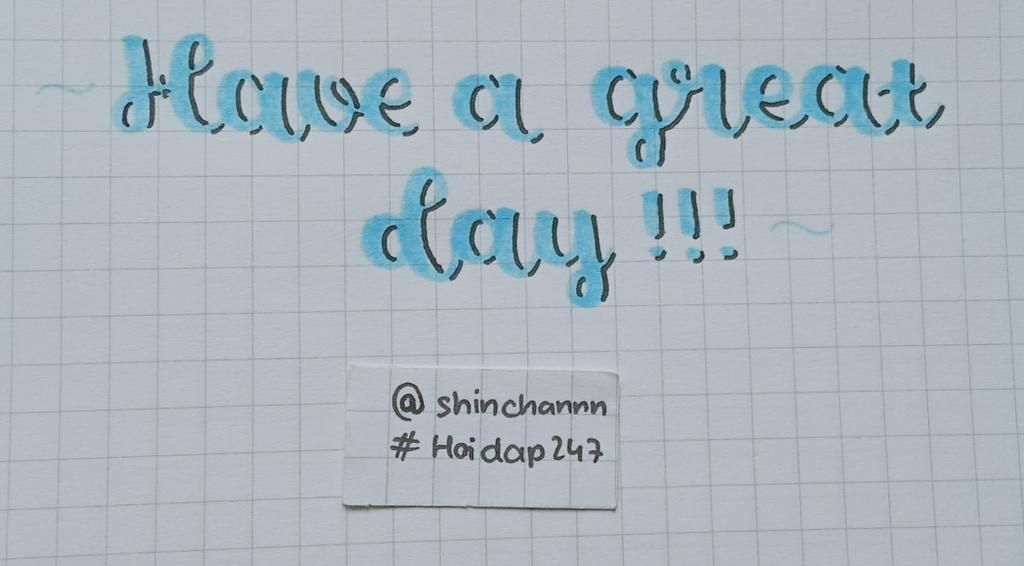 ~ Have a great
day !!! ~
@ shinchannn
# Hoidap247